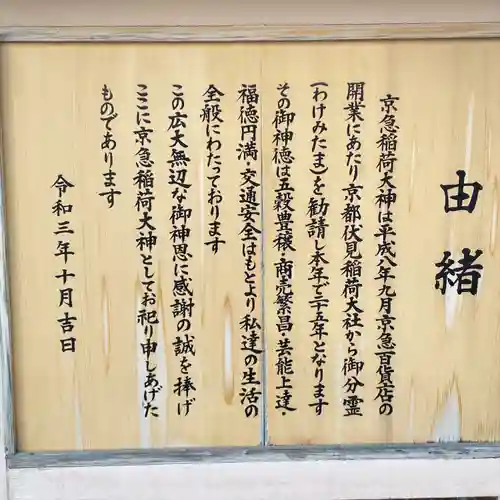 由緒
京急稲荷大神は平成八年九月京急百貨店の
開業にあたり京都伏見稲荷大社から御分霊
(わけみたま)を勧請し本年で二五年となります
その御神徳は五穀豊穣・商売繁昌・芸能上達・
福徳円満・交通安全はもとより私達の生活の
全般にわたっております
この広大無辺な御神恩に感謝の誠を捧げ
ここに京急稲荷大神としてお祀り申しあげた
ものであります
令和三年十月吉日